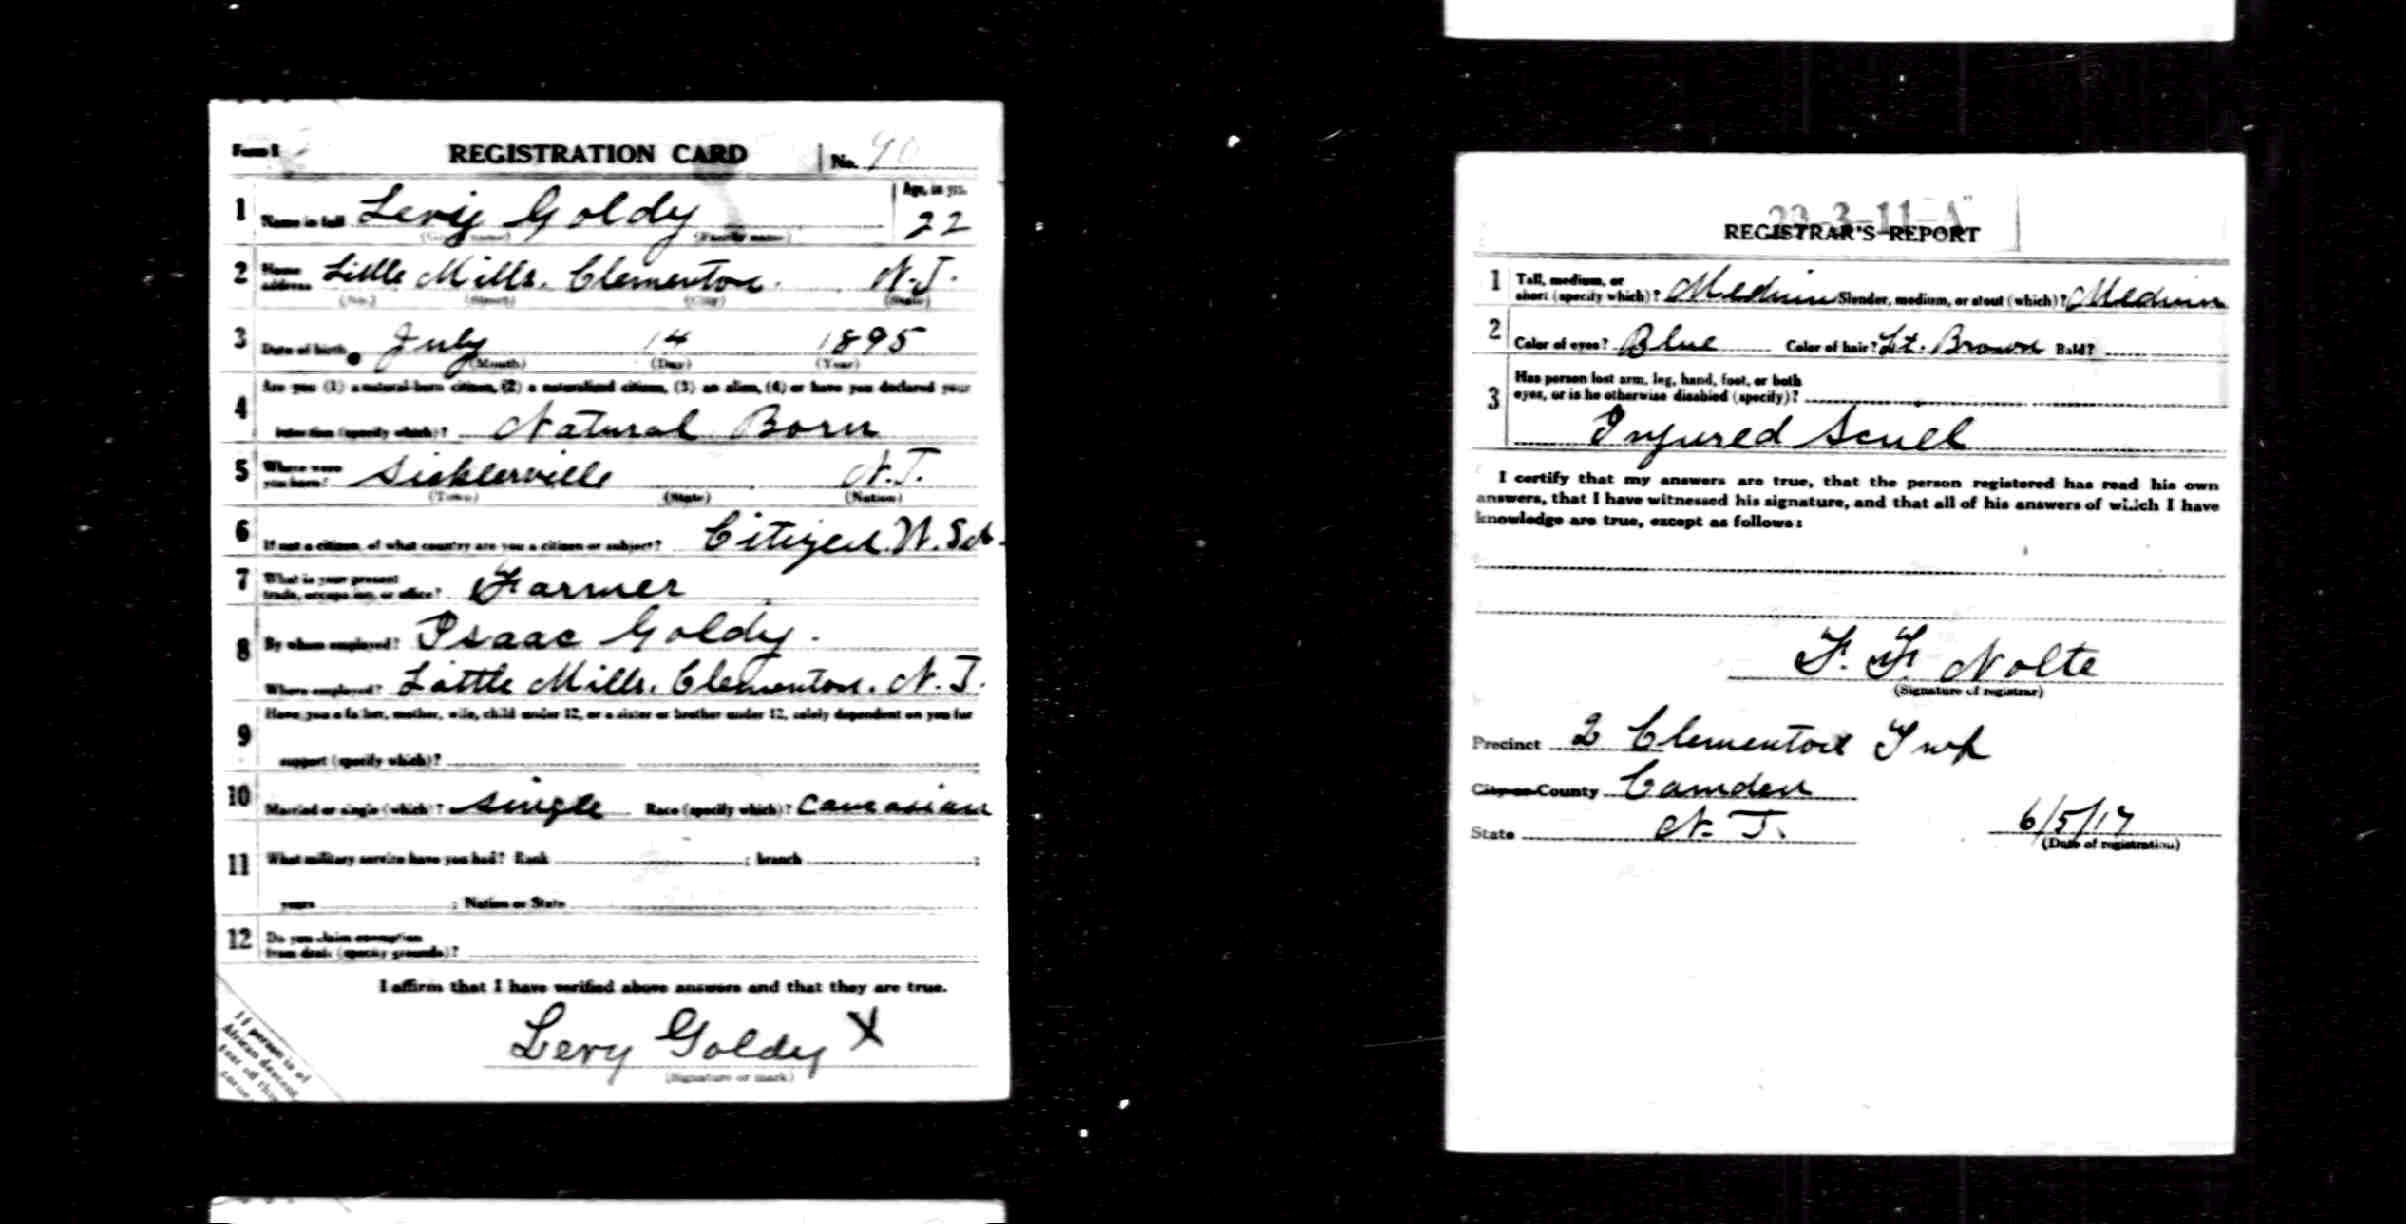 Form 1 REGISTRATION CARD No. 90
1 Name in full Levy Goldy Age, in yrs. 22
(Given name) (Family name)
2 Home address Little Mills. Clementon. N.J.
(No.) (Street) (City) (State)
3 Date of birth July 14 1895
(Month) (Day) (Year)
Are you (1) a natural-born citizen, (2) a naturalized citizen, (3) an alien, (4) or have you declared your
4 intention (specify which)? Natural Born
5 Where were you born? Sicklerville N.J.
(Town) (State) (Nation)
6 If not a citizen, of what country are you a citizen or subject? Citizen
7 What is your present trade, occupation, or office? Farmer
8 By whom employed? Isaac Goldy.
Where employed? Little Mills. Clementon. N.J.
9 Have you a father, mother, wife, child under 12, or a sister or brother under 12, solely dependent on you for
support (specify which)?
10 Married or single (which)? single Race (specify which)? Caucasian
11 What military service have you had? Rank ; branch ;
years ; Nation or State
12 Do you claim exemption
from draft (specify grounds)?
I affirm that I have verified above answers and that they are true.
Levy Goldy X
(Signature or mark)
If person is of
African descent,
tear off this
corner
29-3-11-A
REGISTRAR'S REPORT
1 Tall, medium, or
short (specify which)? Medium Slender, medium, or stout (which)? Medium
2 Color of eyes? Blue Color of hair? Lt. Brown Bald?
3 Has person lost arm, leg, hand, foot, or both
eyes, or is he otherwise disabled (specify)?
Injured Scull
I certify that my answers are true, that the person registered has read his own
answers, that I have witnessed his signature, and that all of his answers of which I have
knowledge are true, except as follows:
F. F. Nolte
(Signature of registrar)
Precinct 2 Clementon Twp
City or County Camden
State N. J. 6/5/17
(Date of registration)